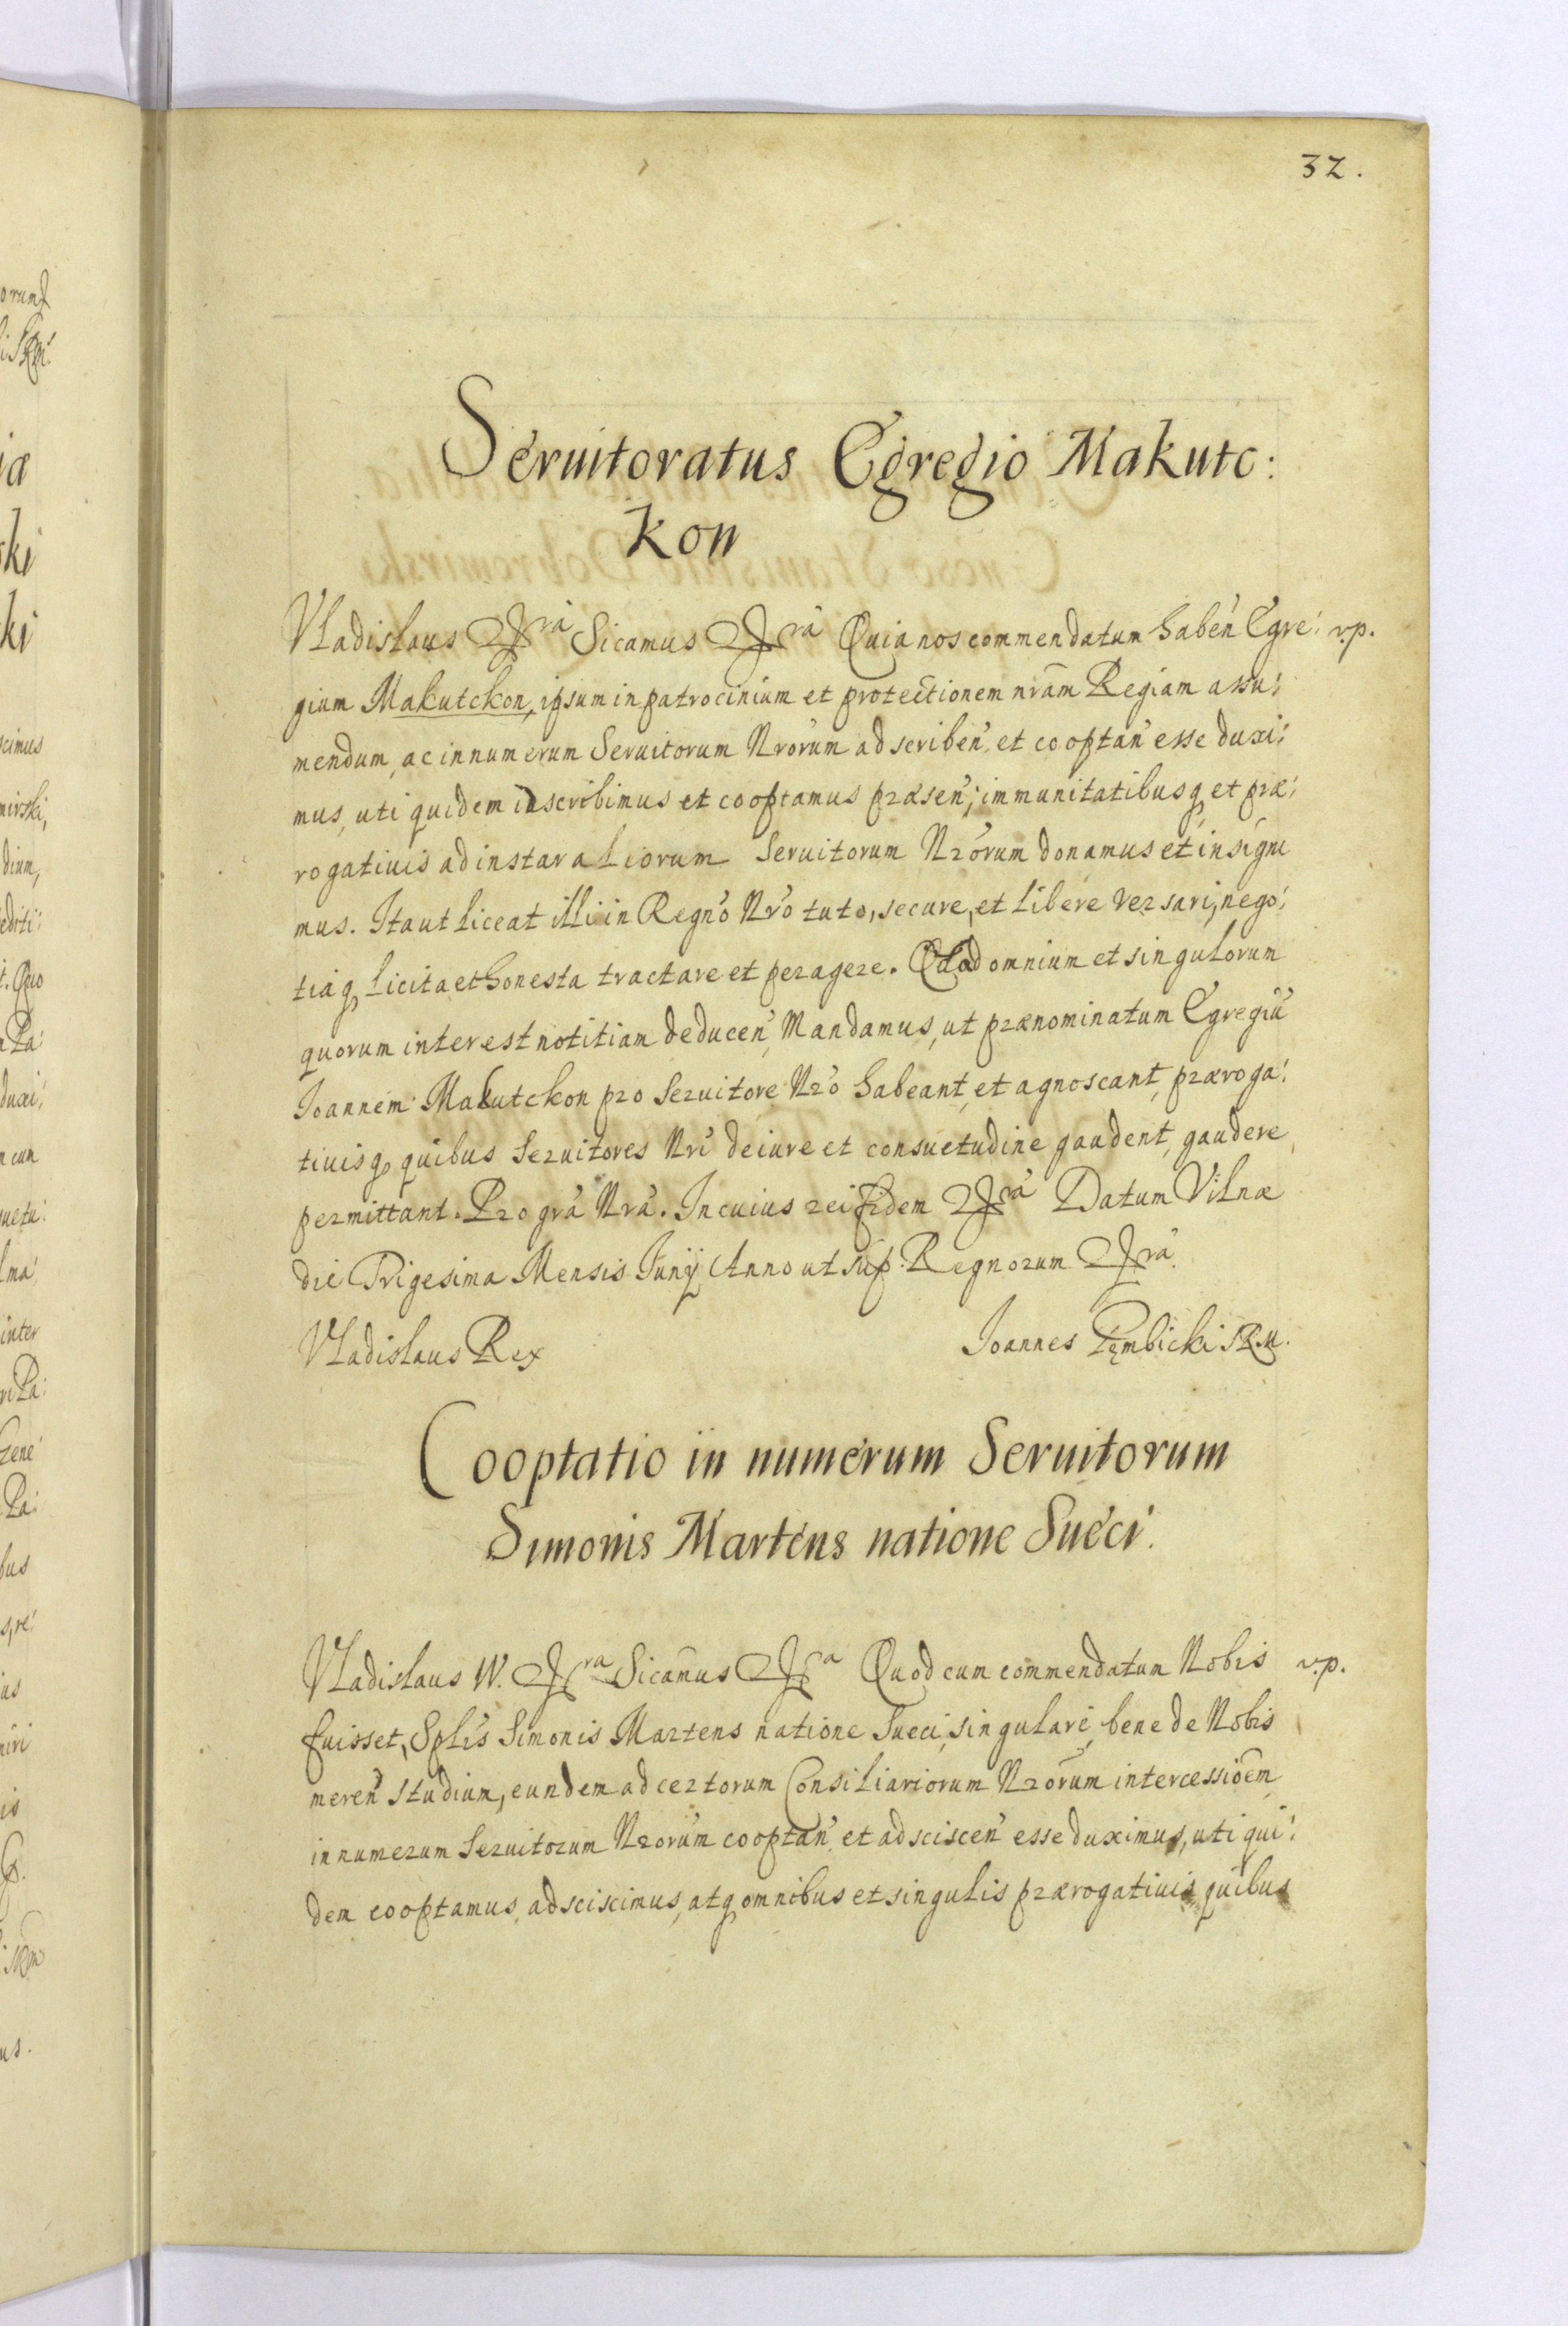 32.
Seruitoratus Egregio Makutc:
kon
Vladislaus &ra Sicamus &ra Quia nos commendatum haben̄ Egre: v.p.
gium Makutckon, ipsum in patrocinium et protectionem nrām Regiam assu:
mendum, ac in numerum Seruitorum Nrorūm adscriben̄, et cooptan̄ esse duxi:
mus, uti quidem inscribimus et cooptamus præsen̄, immunitatibusq, et præ:
rogatiuis ad instar aliorum Seruitorum Nrōrum donamus et insigni
mus. Ita ut liceat illi in Regno Nrō tuto, secure, et libere versari, nego:
tiaq, licita et honesta tractare et peragere. Quod omnium et singulorum
quorum interest notitiam deducen̄, Mandamus, ut prænominatum Egregiū
Joannem Makutckon pro Seruitore Nrō habeant, et agnoscant, præroga:
tiuisq, quibus Seruitores Nrī de iure et consuetudine gaudent, gaudere
permittant. Pro grā Nrā. In cuius rei fidem &ra Datum Vilnæ
die Trigesima Mensis Junij Anno ut sup: Regnorum &ra.
Vladislaus Rex
Joannes Gębicki SRM.
Cooptatio in numerum Seruitorum
Simonis Martens natione Sueci.
Vladislaus IV. &ra Sicamus &ra Quod cum commendatum Nobis v.p.
fuisset, Splīs Simonis Martens natione Sueci, singulare, bene de Nobis
meren̄ studium, eundem ad certorum Consiliariorum Nrōrum intercessiōēm
in numerum Seruitorum Nrorūm cooptan̄, et adsciscen̄ esse duximus, uti qui:
dem cooptamus, adsciscimus, atq, omnibus et singulis prærogatiuis quibus